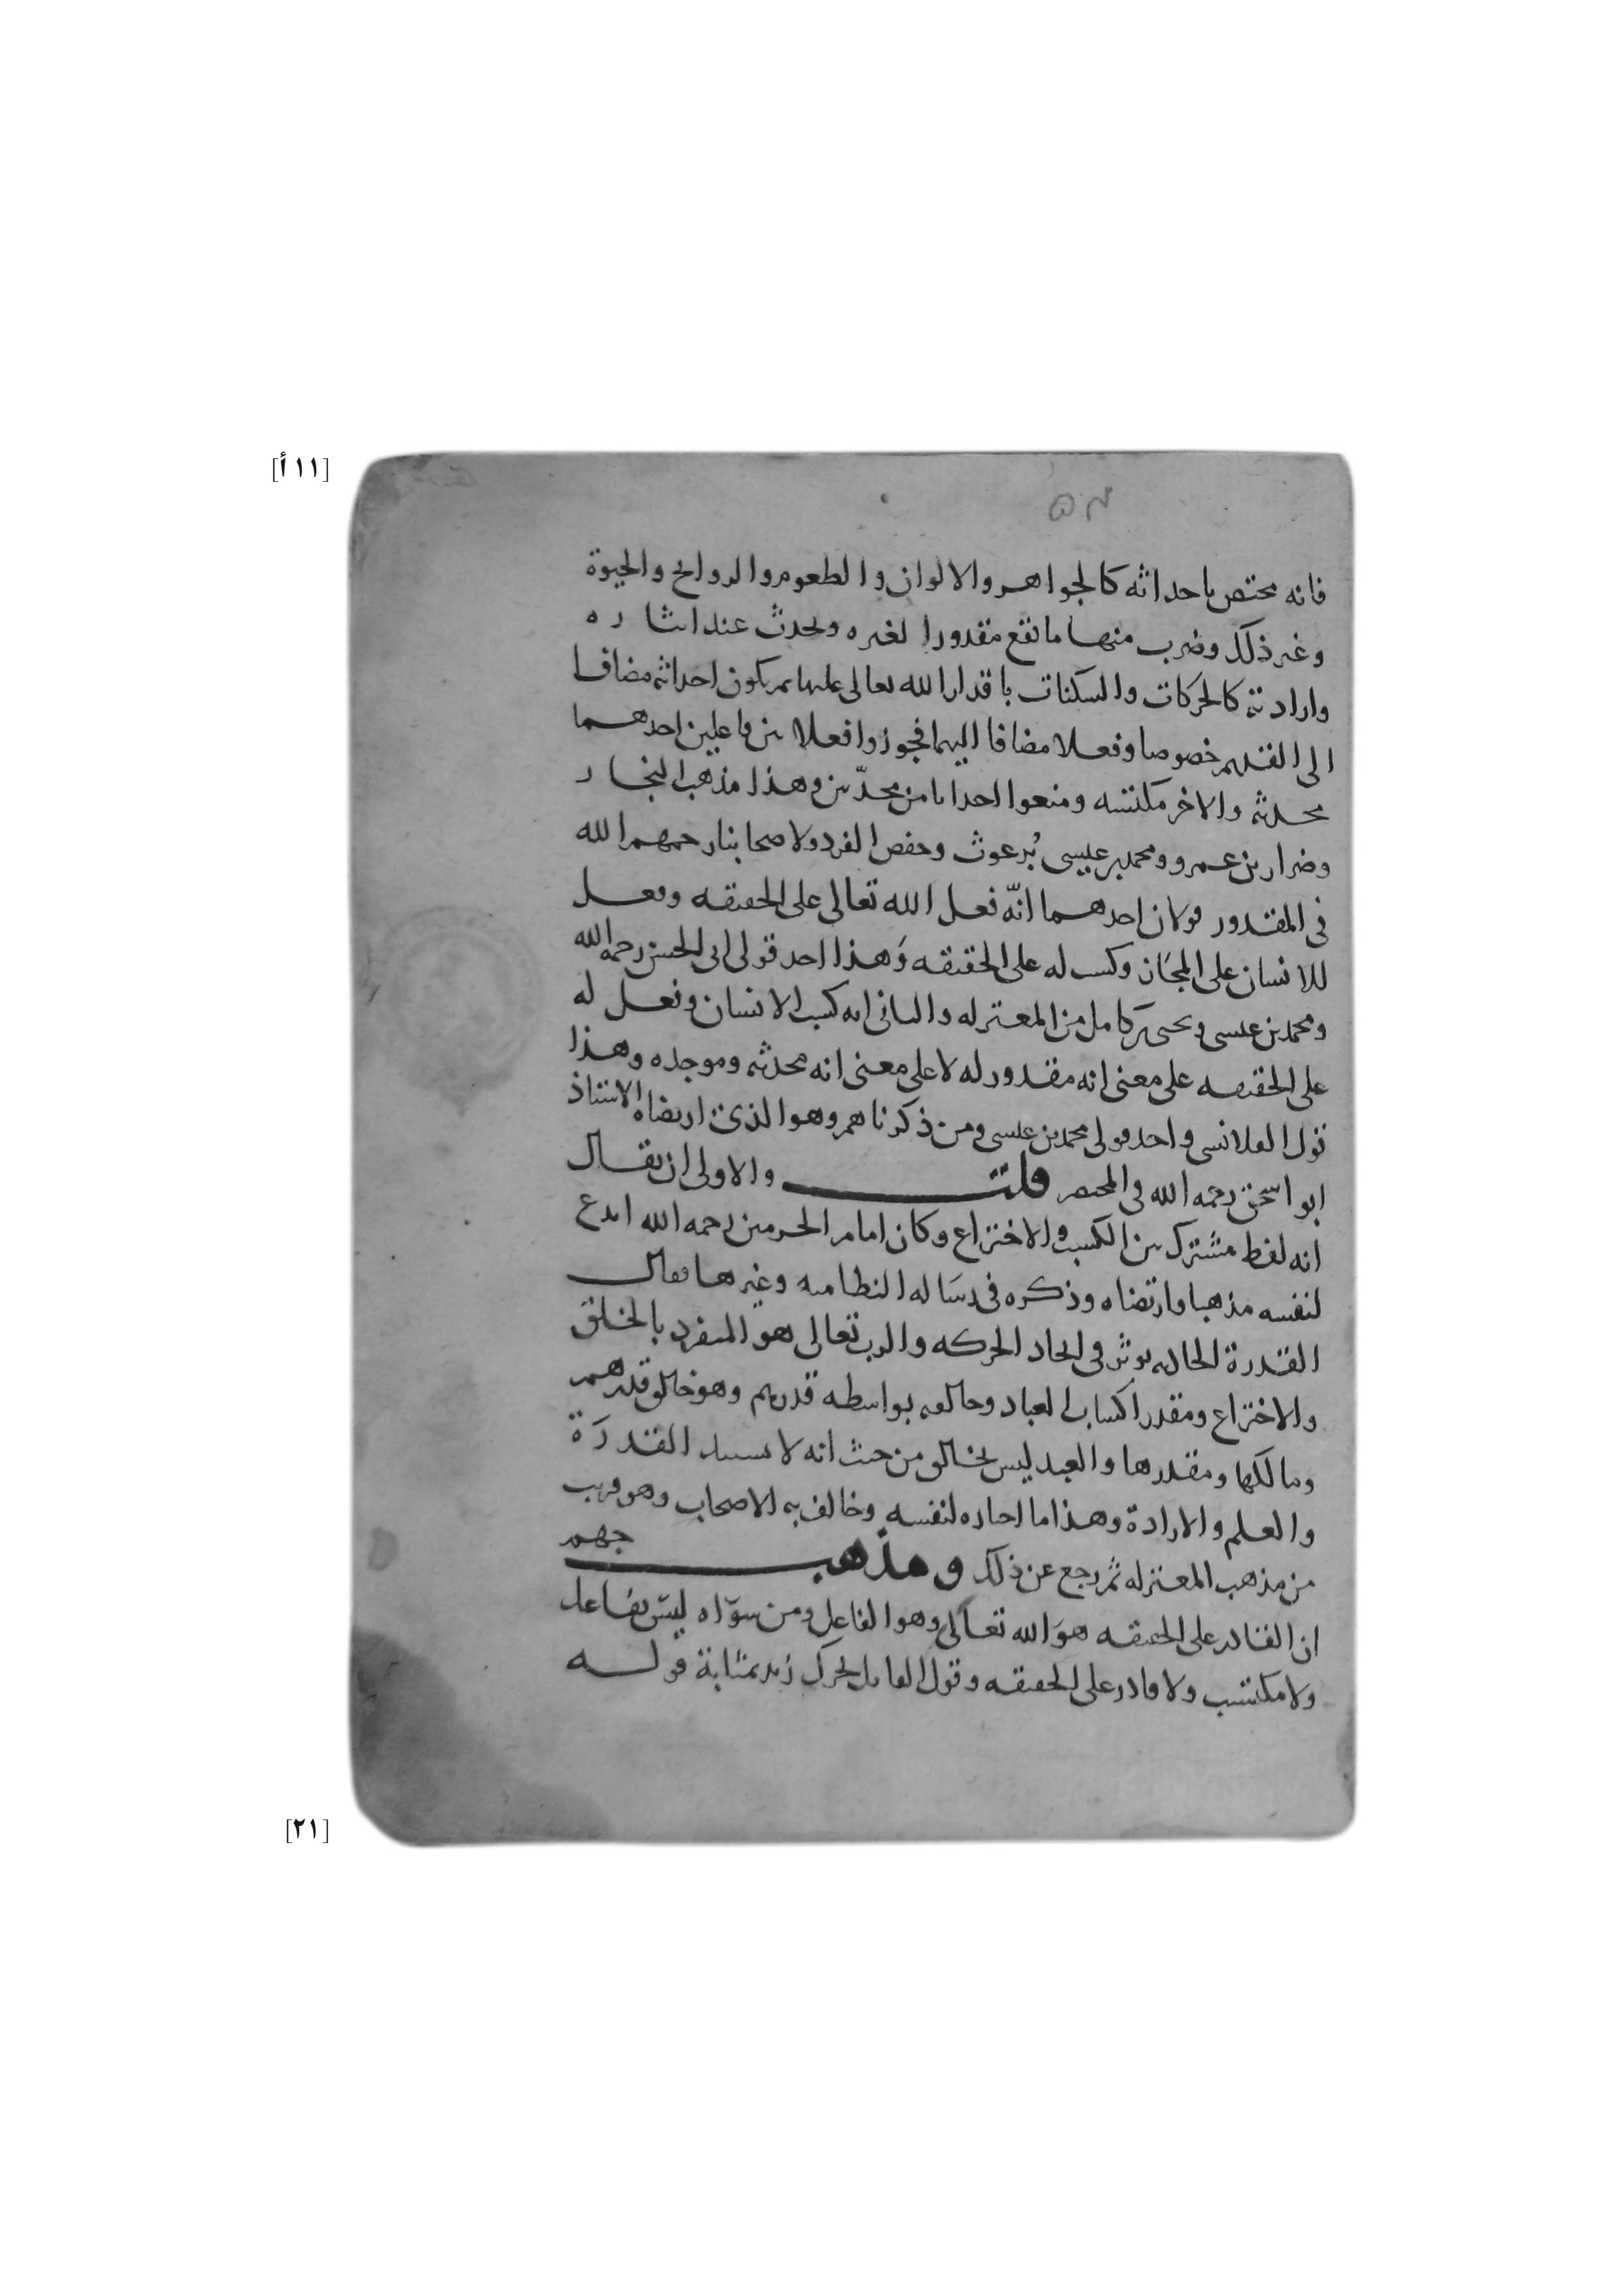 [١١أ]
فانه مختص باحداثه كالجواهر والالوان والطعوم والروايح والحيوة
وغير ذلك وضرب منها ما تقع مقدورا لغيره ويحدث عند اىثاره
وارادته كالحركات والسكنات باقدار الله تعالى عليها ثم يكون احداثه مضافا
الى القديم خصوصا وفعلا مضافا اليهما فجوزوا فعلا بين فاعلين احدهما
محدثه والاخر مكتسبه ومنعوا احداثا من محدّثين وهذا مذهب النجار
وضرار بن عمرو ومحمد بن عيسى بُرغوث وحفص الفرد ولاصحابنا رحمهم الله
في المقدور قولان احدهما انّه فعل الله تعالى على الحقيقه وفعل
للانسان على المجَاز وكسب له على الحقيقه وَهذا احد قولى ابى الحسن رحمه الله
ومحمد بن عيسى ويحيى بن كامل من المعتزله والثانى انه كسب الانسان وفعل له
على الحقيقه على معنى انه مقدور له لا على معنى انه محدثه وموجده وهذا
قول القلانسى واحد قولى محمد بن عيسى ومن ذكرناهم وهو الذى ارتضاه الاستاذ
ابو اسحق رحمه الله فى المختصر قلت والاولى ان يقال
انه لفظ مشترك بين الكسب والاختراع وكان امام الحرمين رحمه الله ابدع
لنفسه مذهبا وارتضاه وذكره فى رسَاله النظاميه وغيرها فقال
القدرة الحادثه توثر فى ايجاد الحركه والرب تعالى هو المنفرد بالخلق
والاختراع ومقدر اكساب العباد وخالقه بواسطه قدرهم وهو خالق قدرهم
ومالكها ومقدرها والعبد ليس بخالق من حيث انه لا يستبد القدرَة
والعلم والارادة وهذا ما اختاره لنفسه وخالف به الاصحاب وهو قريب
من مذهب المعتزله ثم رجع عن ذلك ومذهب جهم
ان القادر على الحقيقه هوَ الله تعَالى وهو الفاعل ومن سوَاه ليسَ بفاعل
ولا مكتسب ولا قادر على الحقيقه وقول القايل تحرك زيد بمثابة قوله
[٢١]